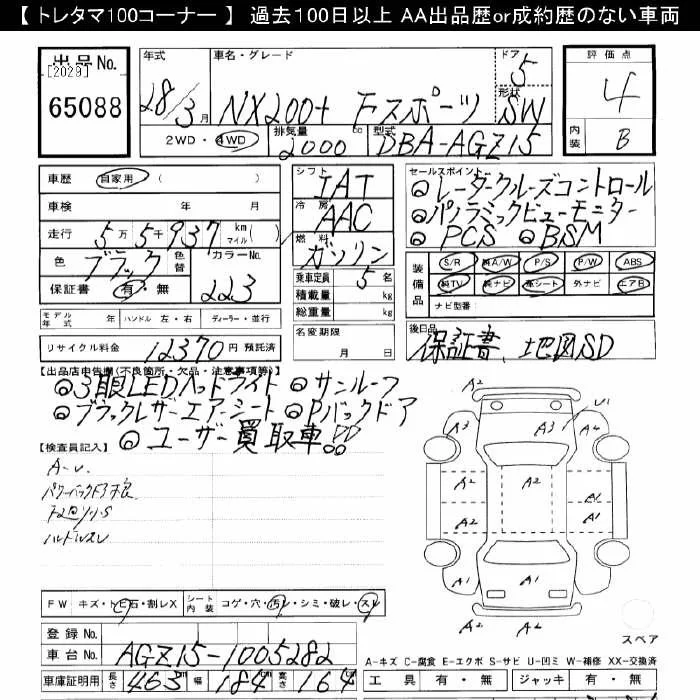 【 トレタマ100コーナー 】 過去100日以上 AA出品歴or成約歴のない車両
出品 No.
[2029]
65088
年式 28/3月
車名・グレード NX200t Fスポーツ
ドア 5
形状 SW
2WD・4WD 排気量 2000 cc 型式 DBA-AGZ15
評価点 4
内装 B
車歴 自家用 ( )
車検 年 月
走行 5万5千937 km マイル( )
色 ブラック 色替 カラーNo. 223
保証書 有・無
シフト IAT
冷房 AAC
燃料 ガソリン
乗車定員 5名
積載量 kg
総重量 kg
セールスポイント
◎レーダークルーズコントロール
◎パノラミックビューモニター
◎PCS ◎BSM
装備品 S/R 純A/W P/S P/W ABS
純TV 純ナビ 革シート 外ナビ エアB
ナビ型番:
モデル年式 年 ハンドル 左・右 ディーラー・並行
名変期限 月 日
リサイクル料金 12370円 預託済
後日品 保証書、地図SD
【出品店申告欄(不良箇所・欠品・注意事項等)】
◎3眼LEDヘッドライト ◎サンルーフ
◎ブラックレザーエアーシート ◎Pバックドア
◎ユーザー買取車!!
【検査員記入】
A-U.
パワーバックドア不良
A2
A3 A3 U1
A2 A2 A2 A1
A2 A2 A1
A1 A2 A1
A2
FW キズ・トビ石・割レX シート内装 コゲ・穴・汚レ・シミ・破レ・スレ
登録 No.
車台 No. AGZ15-1005282
車庫証明用 長さ 463cm 幅 184cm 高さ 164
スペア
A-キズ C-腐食 E-エクボ S-サビ U-凹ミ W-補修 XX-交換済
工具 有・無 ジャッキ 有・無